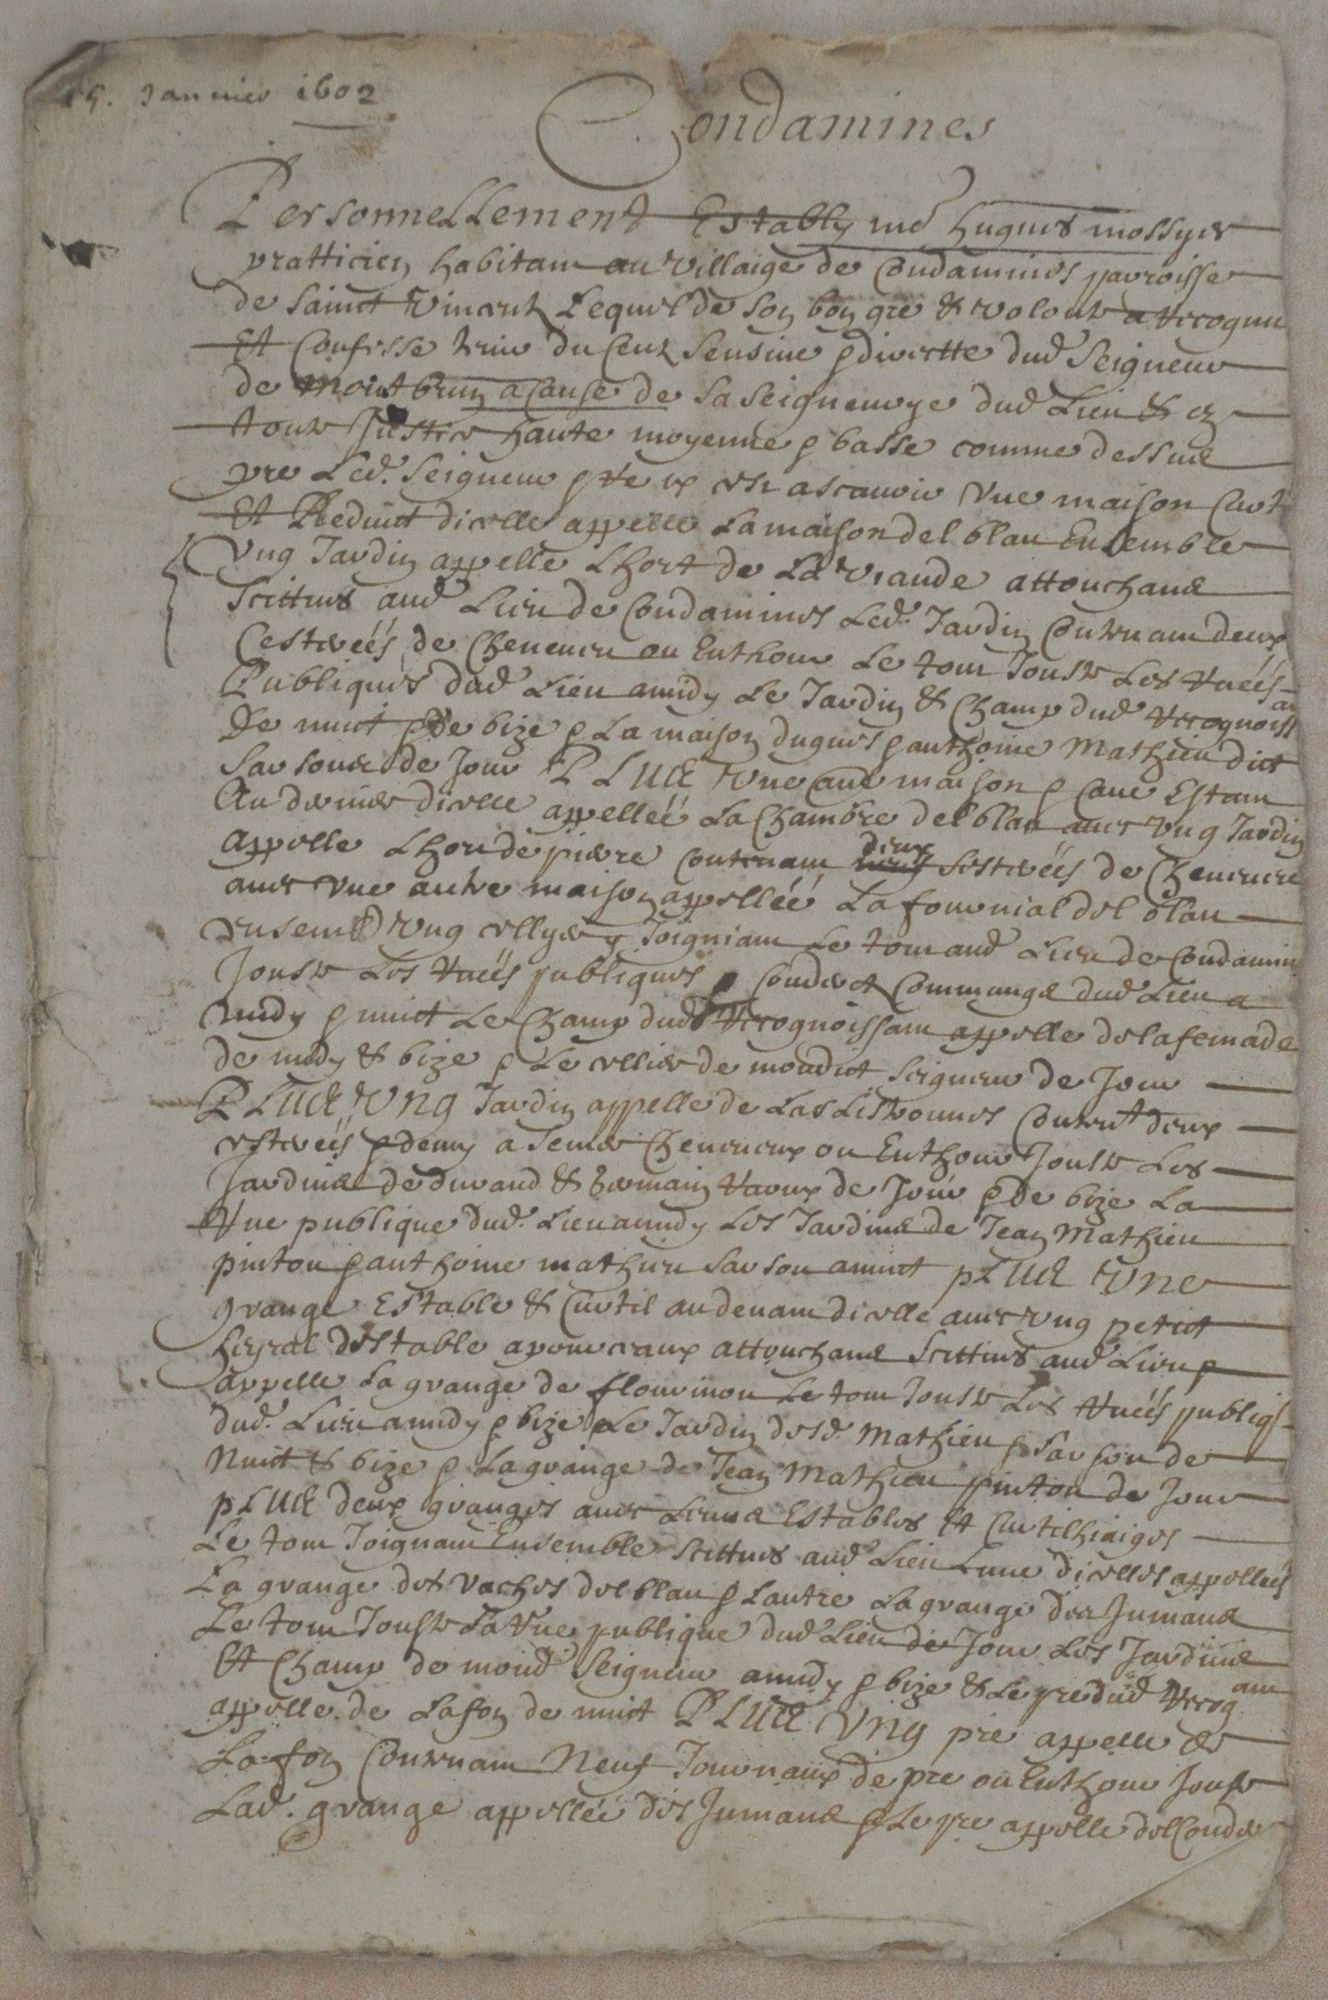 5. Janvier 1602
Condamines
Personnellement Estably me hugues mossyer
pratticien habitant au villaige de Condamines parroisse
de sainct vincent Lequel de son bon gre & volonte a recogneu
Et Confesse tenir du Cens Censive & directte dud Seigneur
de montbrun a Cause de sa seigneurye dud Lieu & en
toute Justice haute moyenne & basse comme dessus
pre Led. Seigneur & est ascavoir Une maison Curt
Et Reduict dicelle appelle La maison del blan Ensemble
Ung Jardin appelle Lhort de La viande attouchans
Scittues aud Lieu de Condamines Led. Jardin Contenant deux
Cestrées de Cheneveu ou Enthour Le tout Jouste Les rueés
Publiques dud Lieu a midy Le Jardin & Champ dud recognoiss ant
De nuict & de bize & La maison dugues & anthoine Mathieu dict
Sarsou de Jour PLUS Une autre maison & Cave Estant
Au dernier dicelle appelleé La Chambre del blan avec Ung Jardin
appelle Lhort de pierre Contenant deux sestreés de Chenevere
avec Une autre maison appelleé La fournial del blan
ensemble Ung cellyer y Joigniant Le tout aud Lieu de Condamin
Jouste Les rueés publiques & Couderct Commungs dud Lieu a
midy & nuict Le Champ dud recognoissant appelle de la femade
de midy & bize & Le cellier de mondict Seigneur de Jour
PLUS Ung Jardin appelle de Las Listronnes Content deux
cestreés & demy a semer Cheneveux ou Enthour Jouste Les
Jardins de durand & germain raoux de Jour & De bize La
Rue publique dud. Lieu a midy Les Jardins de Jean Mathieu
pinton & anthoine mathieu sarsou a nuict PLUS Une
grange Estable & Curtil au devant dicelle avec Ung petict
heyral destable a pourceaux attouchans Scittues aud Lieu &
appelle La grange de flourinou Le tout Jouste Les rueés publiqs
dud. Lieu a midy & bize Le Jardin desd. Mathieu & Sarsou de
Nuict & bize & La grange de Jean Mathieu pinton de Jour
PLUS deux granges avec Leurs Estables Et Curtilhiaiges
Le tout Joignant Ensemble Scittues aud Lieu Lune dicelles appelleés
La grange des vaches del blan & Lautre La grange des Jumans
Le tout Jouste La rue publique dud Lieu de Jour Les Jardins
Et Champ de mond Seigneur a midy & bize & Le pre dud recog ant
appelle de Lafon de nuict PLUS Ung pre appelle de
Lafon Contenant Neuf Journaux de pre ou Enthour Jouste
Lad. grange appelleé des Jumans & Le pre appelle del Couder